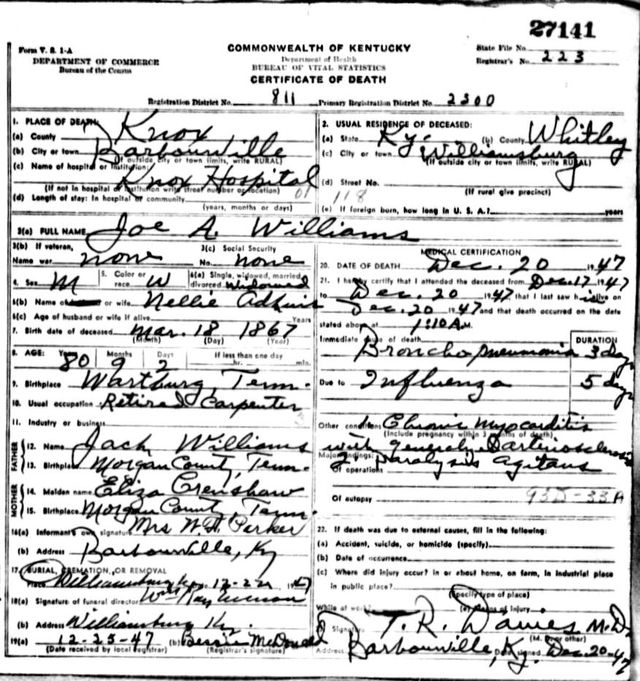 27141
Form V. S. 1-A
DEPARTMENT OF COMMERCE
Bureau of the Census
COMMONWEALTH OF KENTUCKY
Department of Health
BUREAU OF VITAL STATISTICS
CERTIFICATE OF DEATH
State File No.
Registrar's No. 223
Registration District No. 811 Primary Registration District No. 2300
1. PLACE OF DEATH:
(a) County Knox
(b) City or town Barbourville
(If outside city or town limits, write RURAL)
(c) Name of hospital or institution:
Knox Hospital
(If not in hospital or institution write street number or location)
(d) Length of stay: In hospital or community
(years, months or days)
2. USUAL RESIDENCE OF DECEASED:
(a) State Ky. (b) County Whitley
(c) City or town Williamsburg
(If outside city or town limits, write RURAL)
(d) Street No.
118 (If rural give precinct)
(e) If foreign born, how long in U. S. A.? years
3(a) FULL NAME Joe A. Williams
3(b) If veteran, 3(c) Social Security
Name war none No. none
4. Sex M 5. Color or race W 6(a) Single, widowed, married, divorced Widowed
6(b) Name of or wife Nellie Adkins
6(c) Age of husband or wife if alive Years
7. Birth date of deceased Mar. 18 1867
(Month) (Day) (Year)
8. AGE: Years Months Days If less than one day
80 9 2 hr. min.
9. Birthplace Wartburg, Tenn.
10. Usual occupation Retired Carpenter
11. Industry or business
FATHER
12. Name Jack Williams
13. Birthplace Morgan County, Tenn.
MOTHER
14. Maiden name Eliza Crenshaw
15. Birthplace Morgan County, Tenn.
16(a) Informant's own signature Mrs W. H. Parker
(b) Address Barbourville, Ky
17. BURIAL, CREMATION, OR REMOVAL
Place Williamsburg Ky. 12-22 1947
18(a) Signature of funeral director
(b) Address Williamsburg Ky.
19(a) 12-25-47 (b) Bessie McDonald
(Date received by local registrar) (Registrar's signature)
MEDICAL CERTIFICATION
20. DATE OF DEATH Dec. 20 1947
21. I hereby certify that I attended the deceased from Dec. 17 1947
to Dec. 20 1947 that I last saw h alive on
Dec. 20 1947 and that death occurred on the date
stated above at 1:10 A M.
Immediate cause of death DURATION
Broncho pneumonia 3 days
Due to Influenza 5 days
Other conditions 1. Chronic myocarditis
(Include pregnancy within 3 months of death)
with general arteriosclerosis
Major findings: 2. Paralysis Agitans
Of operations
Of autopsy 93D-33A
22. If death was due to external causes, fill in the following:
(a) Accident, suicide, or homicide (specify)
(b) Date of occurrence
(c) Where did injury occur? in or about home, on farm, in industrial place
in public place?
(Specify type of place)
While at work? (e) Means of injury
Signature T. R. Davies M.D.
(M. D. or other)
Address Barbourville, Ky. Date signed Dec. 20-47